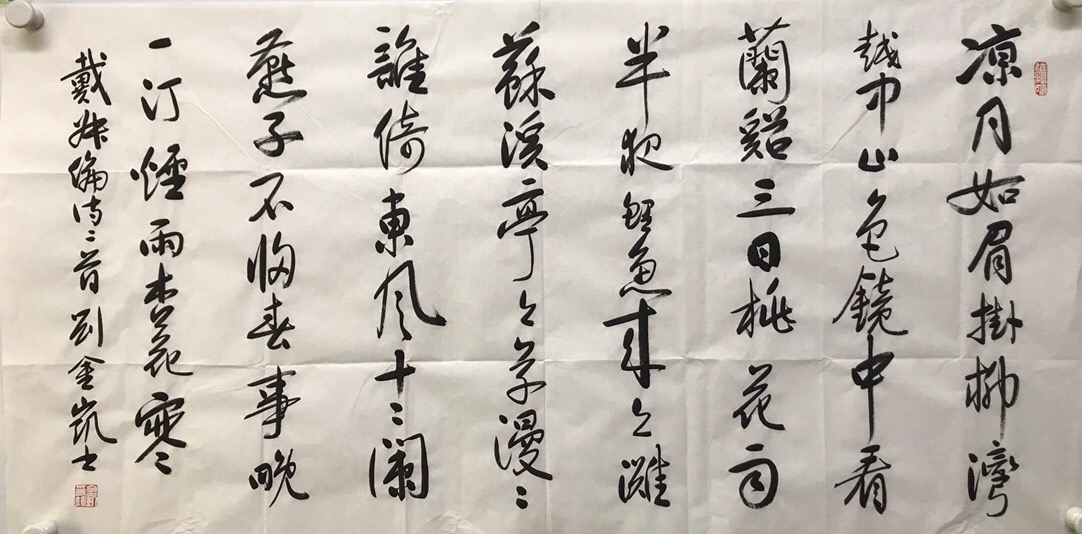 凉月如眉掛柳灣
越中山色鏡中看
蘭谿三日桃花雨
半夜鲤魚来上灘
蘇溪亭上草漫〻
誰倚東風十二瀾
燕子不歸春事晚
一汀煙雨杏花寒
戴叔倫诗二首 劉金凱书